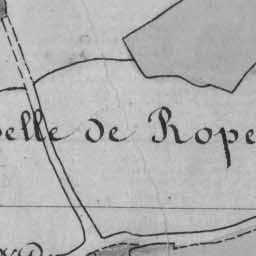 elle de Rope